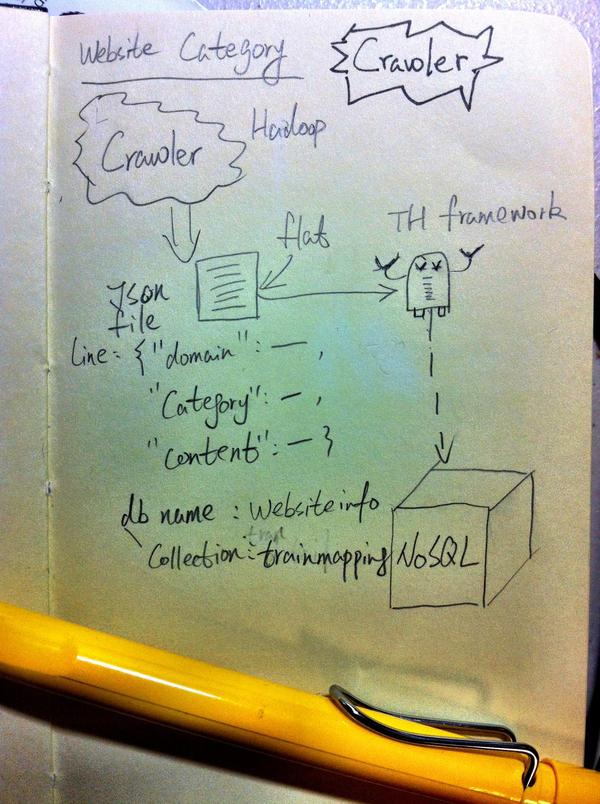 Website Category
Crawler
Crawler
Hadoop
TH framework
flat
Json
file
Line: {"domain": — ,
"Category": — ,
"content": — }
db name : Websiteinfo
Collection: trainmapping
NoSQL